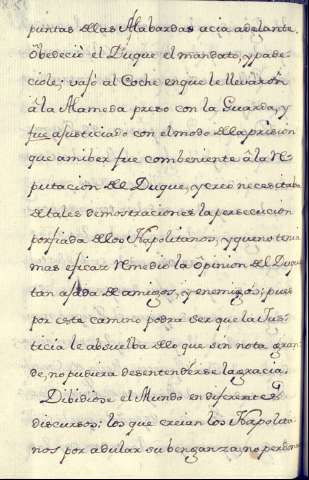 puntas dellas Alabardas acia adelante.
Obedeciò el Duque el mandato, y pade-
ciole; vajò al Coche enque le llevaron
â la Alameda preso con la Guarda, y
fue ajusticiado con el modo de la prision
que amiber fue combeniente â la Re-
putacion del Duque, y creo necesitaba
de tales demostraciones la persecucion
porfiada de los Napolitanos, y que no tenia
mas eficaz Remedio la Opinion del Duque
tan ajada de amigos, y enemigos; pues
por este camino podra ser que la Jus-
ticia le absuelba de lo que sin nota gran-
de, no pudiera desentenderse la gracia.
Dibidiose el Mundo en diferentes
discursos: los que creian los Napolita-
nos por adular su benganza, no perdona